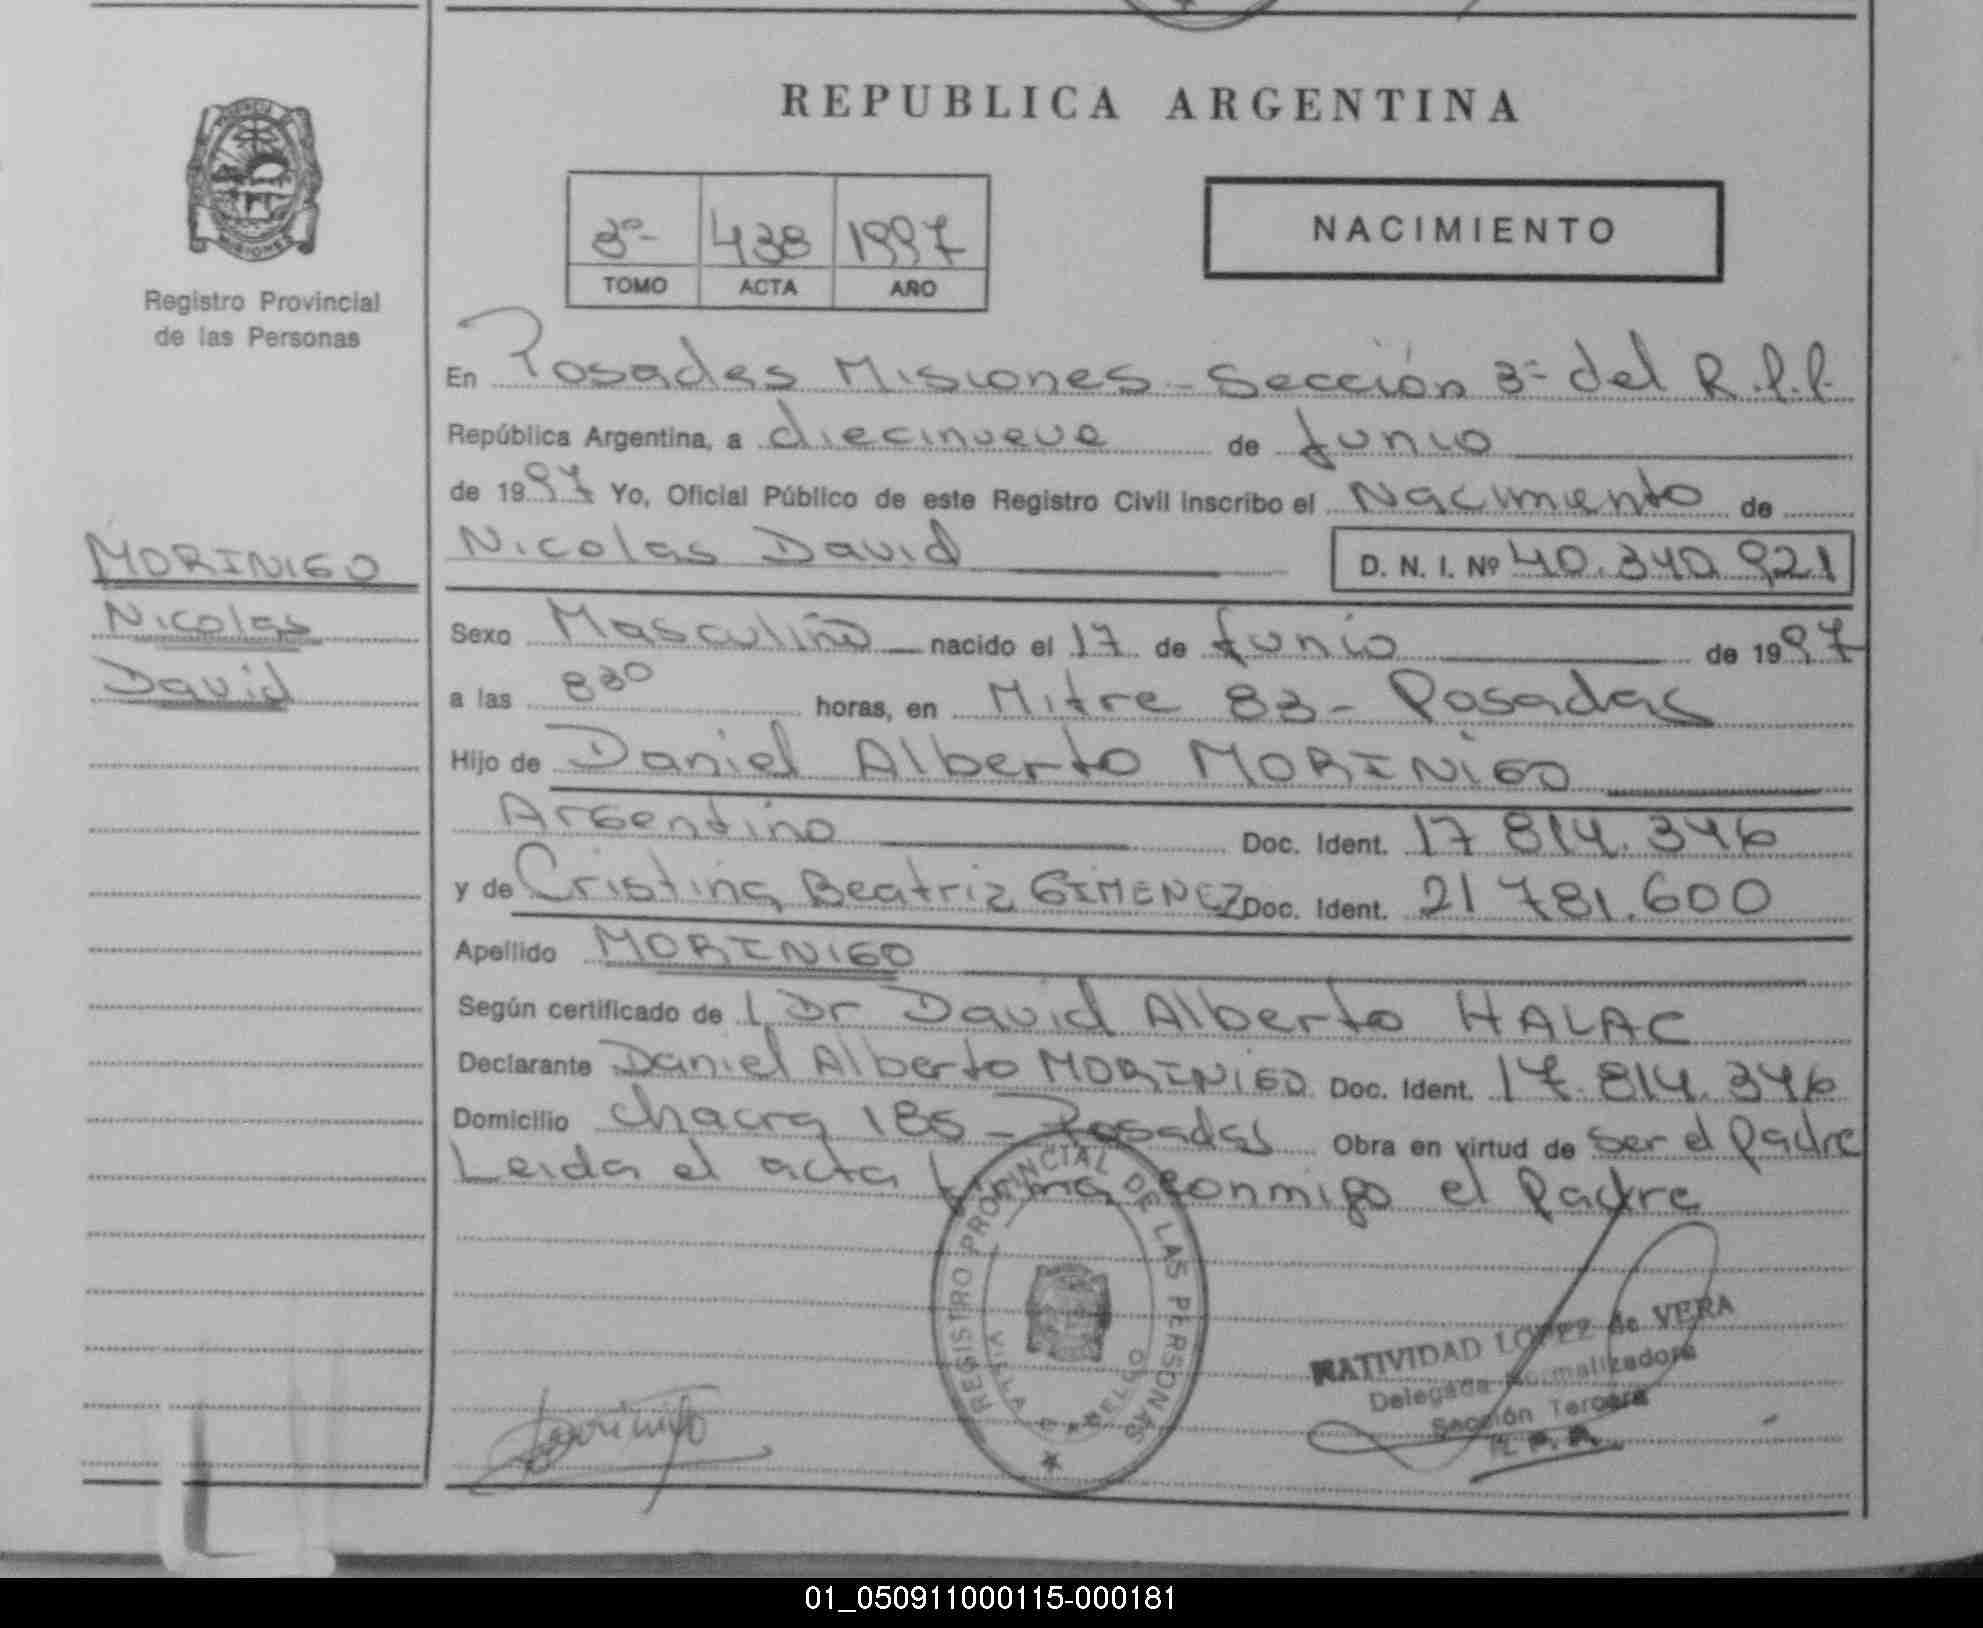 REPUBLICA ARGENTINA
Registro Provincial
de las Personas
3º- 438 1997
TOMO ACTA AÑO
NACIMIENTO
En Posadas Misiones - Sección 3ª del R.P.P.
República Argentina, a diecinueve de Junio
de 1997 Yo, Oficial Público de este Registro Civil inscribo el Nacimiento de
MORINIGO
Nicolas
David
Nicolas David D. N. I. Nº 40.340.921
Sexo Masculino nacido el 17 de Junio de 1997
a las 830 horas, en Mitre 83 - Posadas
Hijo de Daniel Alberto MORINIGO
Argentino Doc. Ident. 17 814.346
y de Cristina Beatriz GIMENEZ Doc. Ident. 21 781.600
Apellido MORINIGO
Según certificado de l Dr David Alberto HALAC
Declarante Daniel Alberto MORINIGO Doc. Ident. 17.814.346
Domicilio Chacra 185 - Posadas Obra en virtud de Ser el Padre
Leida el acta firma conmigo el Padre
REGISTRO PROVINCIAL DE LAS PERSONAS
VILLA
NATIVIDAD LOPEZ de VERA
Delegada Normalizadora
Sección Tercera
Morinigo
01_050911000115-000181